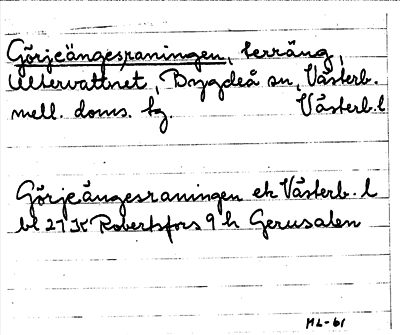 Görjeängesraningen, terräng,
Ultervattnet, Bygdeå sn, Västerb.
mell. doms. tg. Västerb.l
Görjeängesraningen ek Västerb. l
bl 21 K Robertsfors 9 h Gerusalen
ML-61